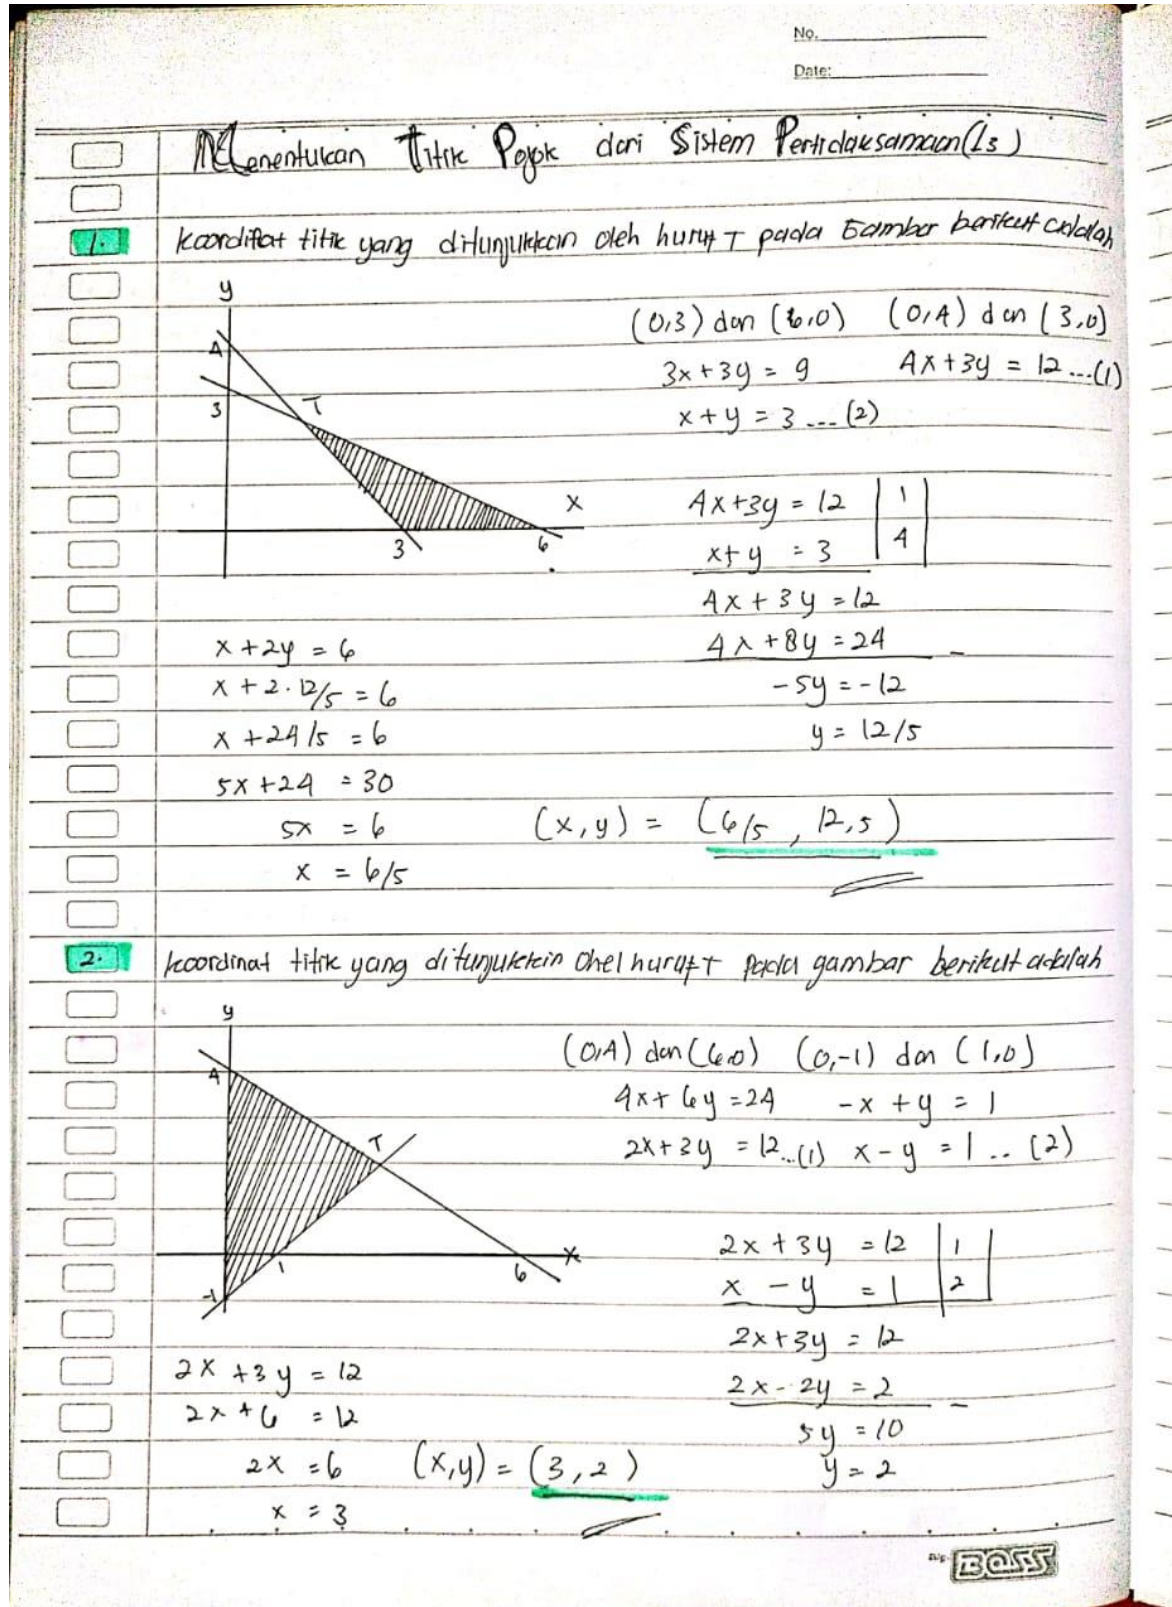 No.
Date:
Menentukan Titik Pojok dari Sistem Pertidaksamaan (Is)
1. koordinat titik yang ditunjukkan oleh huruf T pada Gambar berikut adalah
y
4
3
T
x
3
6
(0,3) dan (6,0) (0,4) dan (3,0)
3x + 3y = 9 4x + 3y = 12 ...(1)
x + y = 3 ... (2)
4x + 3y = 12 | 1 |
x + y = 3 | 4 |
4x + 3y = 12
4x + 8y = 24 -
-5y = -12
y = 12/5
x + 2y = 6
x + 2 . 12/5 = 6
x + 24/5 = 6
5x + 24 = 30
5x = 6
x = 6/5
(x, y) = (6/5 , 12,5)
2. koordinat titik yang ditunjukkan ohel huruf T pada gambar berikut adalah
y
4
T
x
1
6
-1
(0,4) dan (6,0) (0,-1) dan (1,0)
4x + 6y = 24 -x + y = 1
2x + 3y = 12 ..(1) x - y = 1 .. (2)
2x + 3y = 12 | 1 |
x - y = 1 | 2 |
2x + 3y = 12
2x - 2y = 2 -
5y = 10
y = 2
2x + 3y = 12
2x + 6 = 12
2x = 6
x = 3
(x,y) = (3, 2)
BOSS